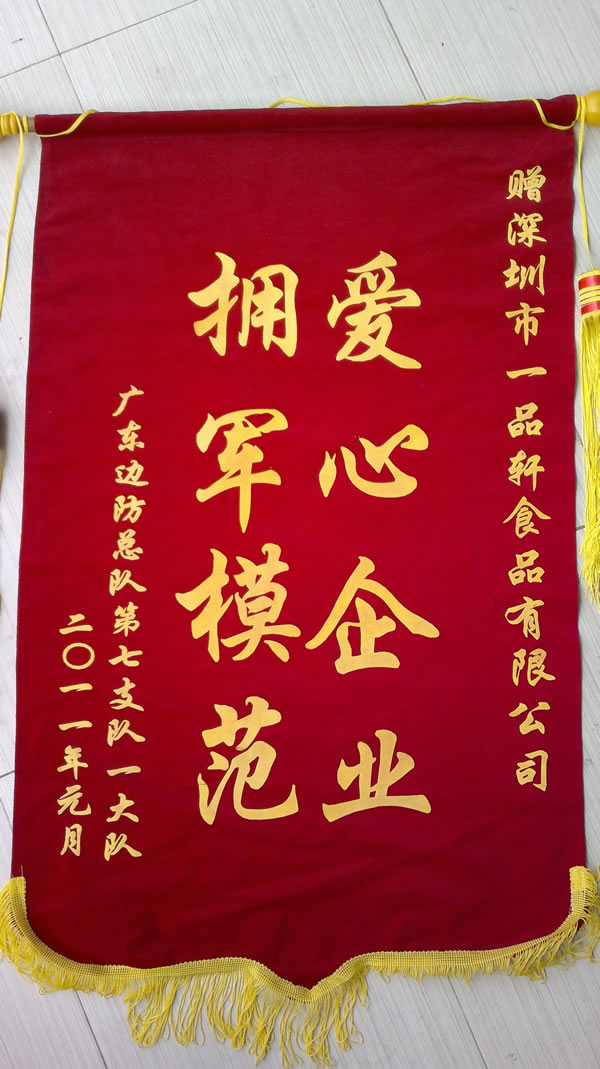 赠深圳市一品轩食品有限公司
爱心企业
拥军模范
广东边防总队第七支队一大队
二〇一一年元月